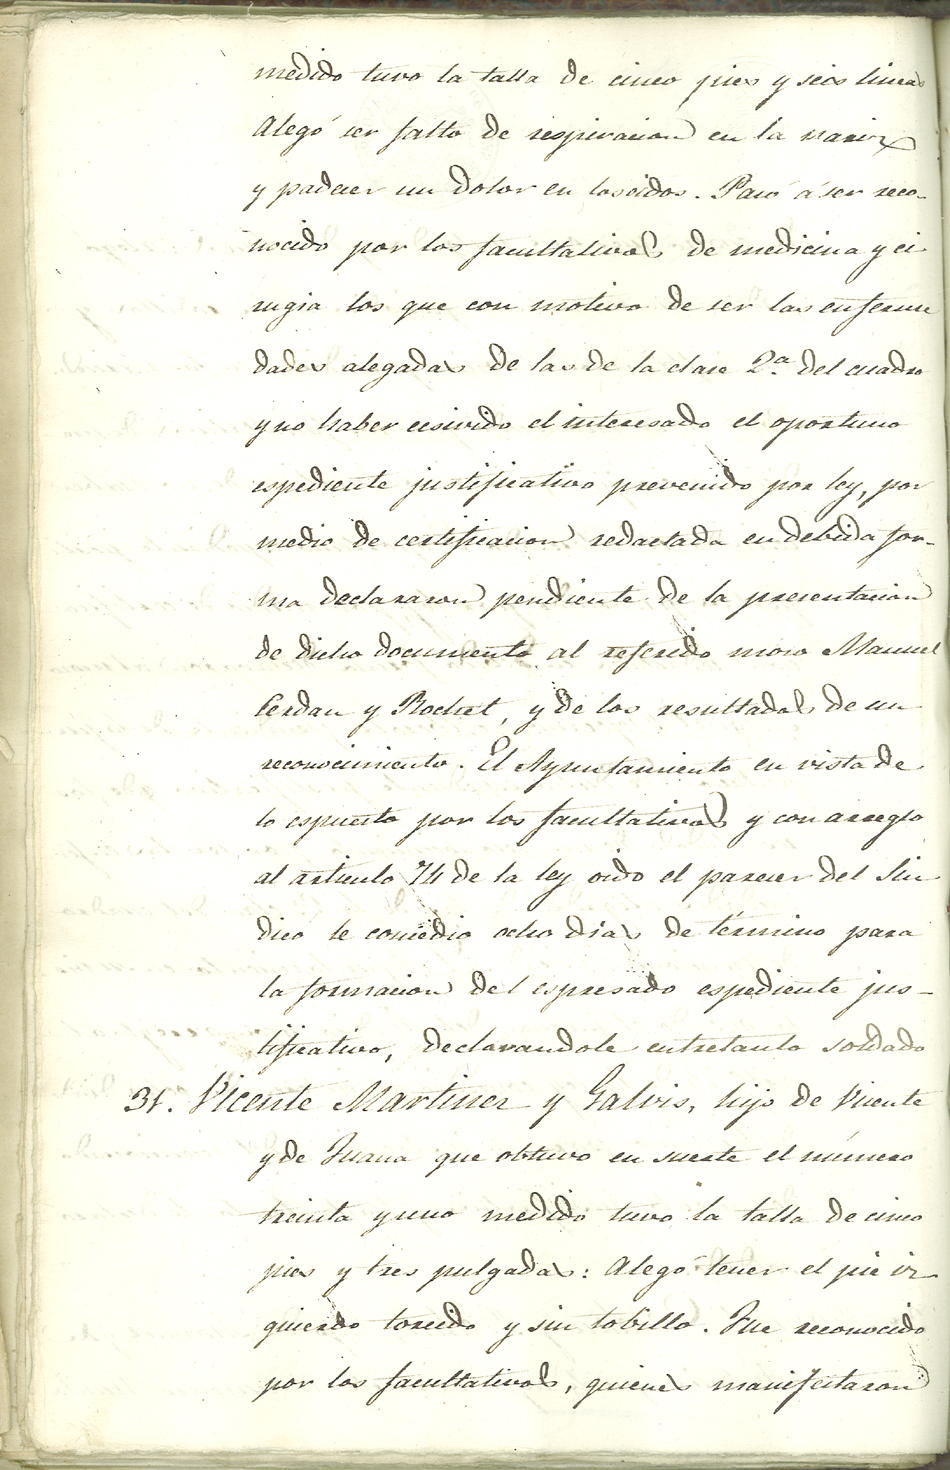 medido tuvo la talla de cinco pies y seis lineas
Alegó ser falto de respiracion en la nariz
y padecer un dolor en los oidos. Pasó á ser reco-
nocido por los facultativos de medicina y ci
rugia los que con motivo de ser las enferme
dades alegadas de las de la clase 2.ª del cuadro
y no haber ecsivido el interesado el oportuno
espediente justificativo prevenido por ley, por
medio de certificacion redactada en debida for-
ma declararon pendiente de la presentacion
de dicho documento al referido mozo Manuel
Cerdan y Rochel, y de los resultados de un
reconocimiento. El Ayuntamiento en vista de
lo espuesto por los facultativos y con arreglo
al articulo 74 de la ley oido el parecer del Sin
dico le concedio ocho dias de término para
la formacion del espresado espediente jus-
tificativo, declarandole entretanto soldado
31. Vicente Martinez y Galvis, hijo de Vicente
y de Juana que obtuvo en suerte el número
treinta y uno medido tuvo la talla de cinco
pies y tres pulgadas: Alegó tener el pie iz
quierdo torcido y sin tobillo. Fue reconocido
por los facultativos, quienes manifestaron